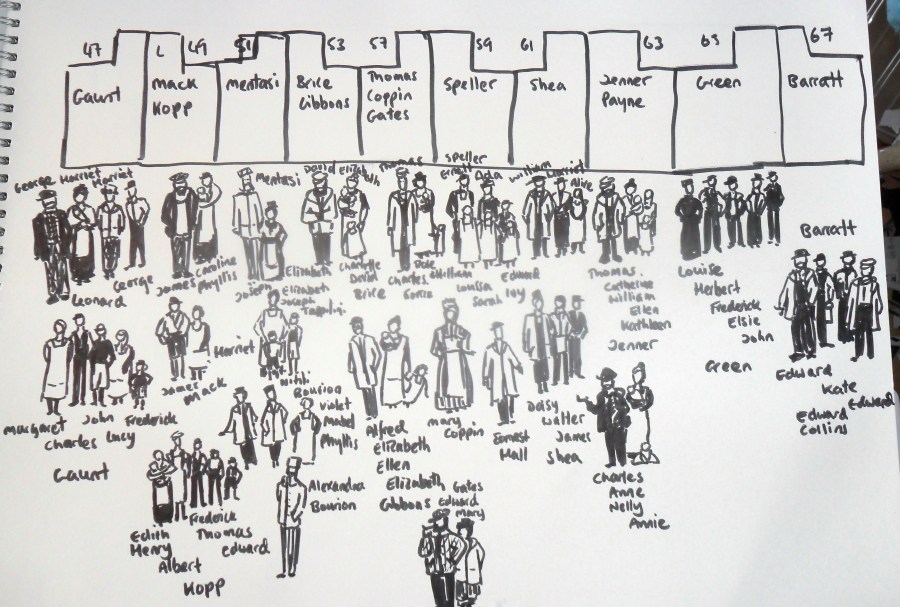 47
L
49
51
53
57
59
61
63
65
67
Gaunt
Mack
Kopp
Mentasi
Brice
Gibbons
Thomas
Coppin
Gates
Speller
Shea
Jenner
Payne
Green
Barratt
George Harriet
Harriet
Leonard
George
James
Caroline
Phyllis
Mentasi
Joseph
Elizabeth
Elizabeth
Joseph
David Elizabeth
Charlotte
David
Brice
Thomas
Charles
Speller
Ernest
Ada
William
Louisa
Sarah
Edward
Ivy
William
Harriet
Alice
Thomas
Catherine
William
Ellen
Kathleen
Jenner
Louise
Herbert
Frederick
Elsie
John
Green
Barratt
Edward
Kate
Edward
Edward
Collins
Margaret
Charles
John
Lucy
Frederick
Gaunt
James
Mack
Harriet
Bourion
Violet
Mabel
Phyllis
Alexandra
Bourion
Alfred
Elizabeth
Ellen
Elizabeth
Gibbons
Mary
Coppin
Ernest
Hall
Daisy
Walter
James
Shea
Charles
Anne
Nelly
Annie
Edith
Henry
Albert
Frederick
Thomas
Edward
Kopp
Gates
Edward
Mary